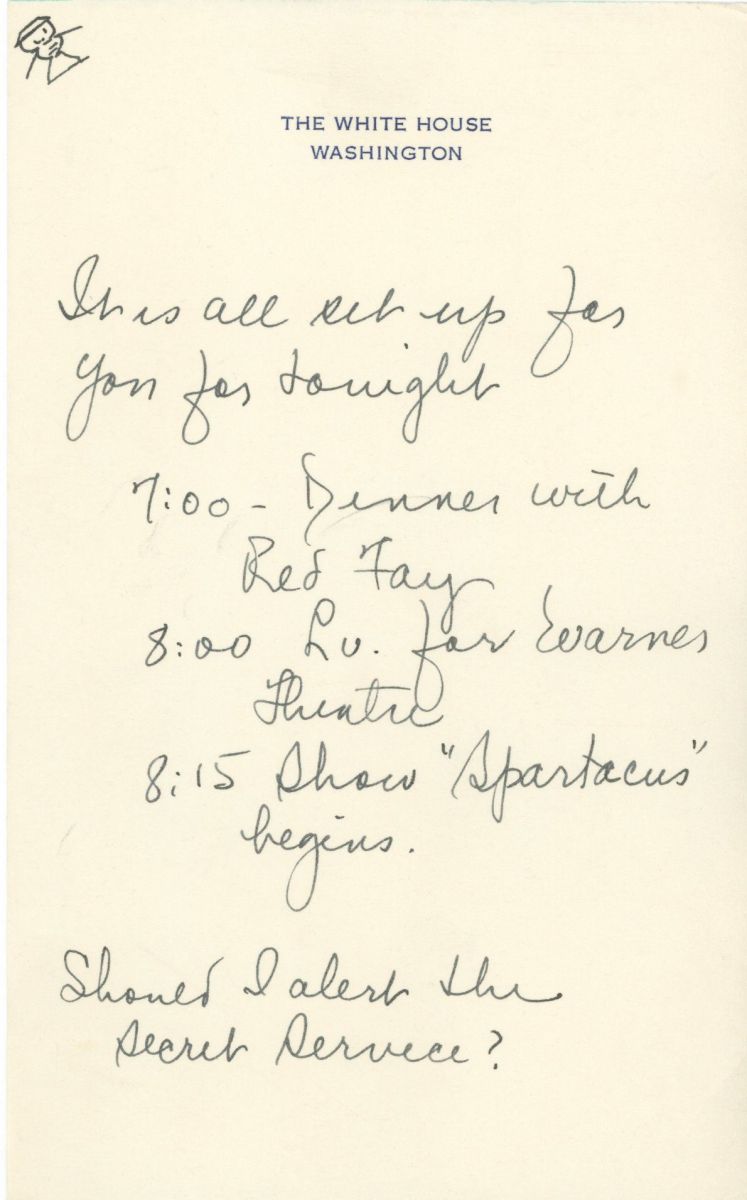 THE WHITE HOUSE
WASHINGTON
It is all set up for
you for tonight
7:00 - Dinner with
Red Fay
8:00 Lv. for Warner
Theatre
8:15 Show "Spartacus"
begins.
Should I alert the
Secret Service?